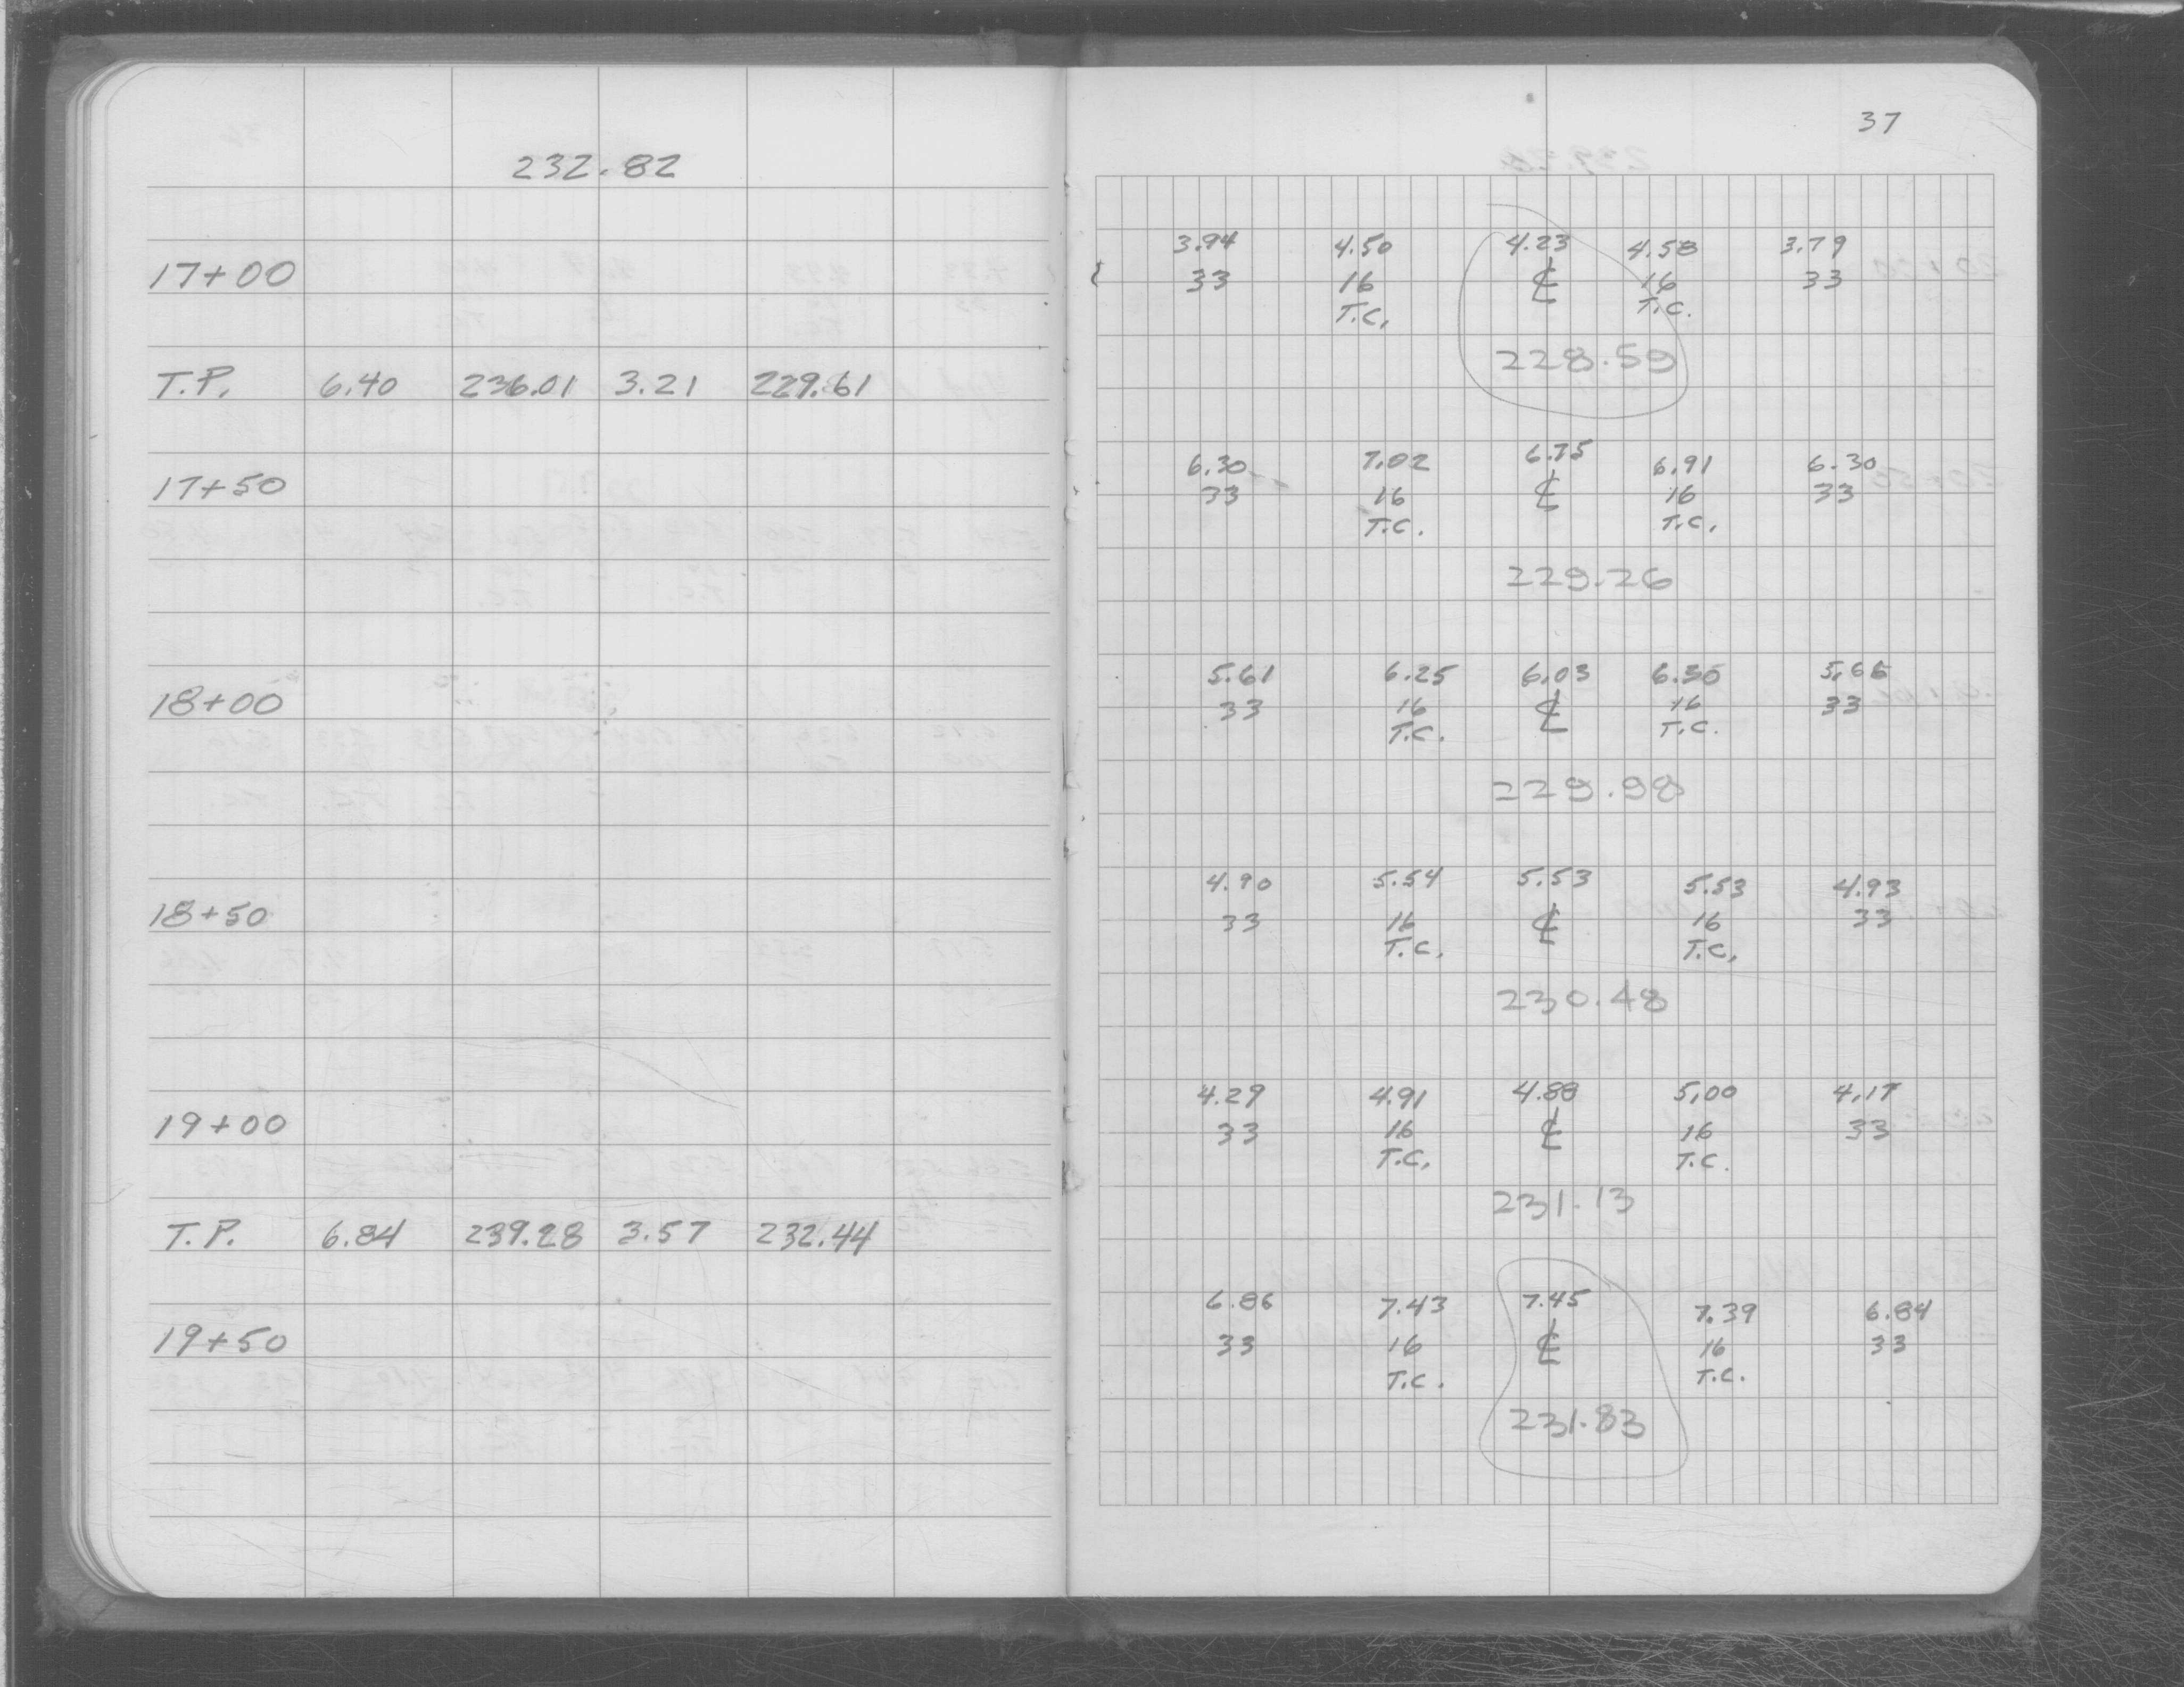 232.82
17+00
T.P. 6.40 236.01 3.21 229.61
17+50
18+00
18+50
19+00
T.P. 6.84 239.28 3.57 232.44
19+50
37
3.94 4.50 4.23 4.58 3.79
33 16 ℄ 16 33
T.C. T.C.
228.59
6.30 7.02 6.75 6.91 6.30
33 16 ℄ 16 33
T.C. T.C.
229.26
5.61 6.25 6.03 6.30
33 16 ℄ 16 33
T.C. T.C.
229.98
4.90 5.54 5.53 5.53 4.93
33 16 ℄ 16 33
T.C. T.C.
230.48
4.29 4.91 4.88 5.00 4.17
33 16 ℄ 16 33
T.C. T.C.
231.13
6.86 7.43 7.45 7.39 6.84
33 16 ℄ 16 33
T.C. T.C.
231.83